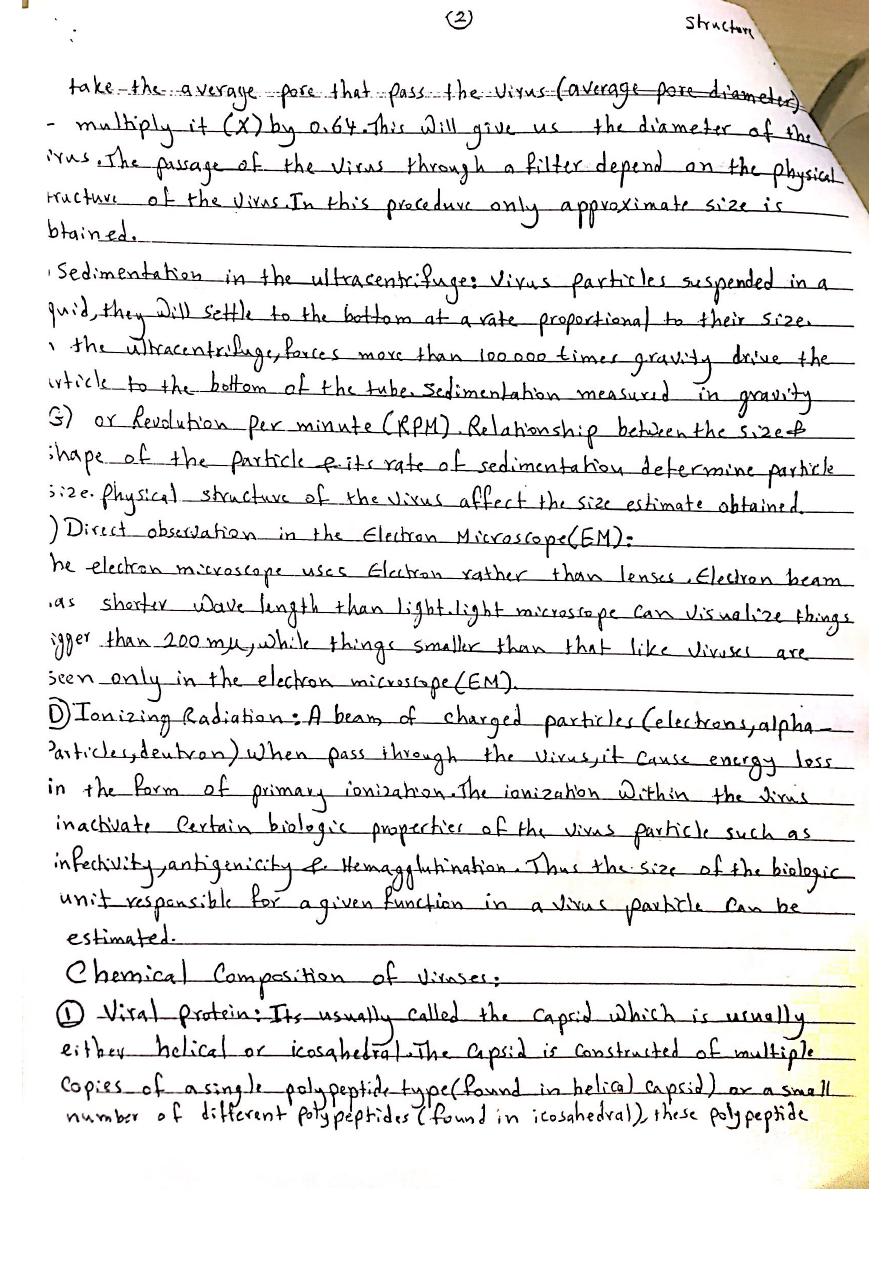 (2)
Structure
take the average pore that pass the virus (average pore diameter)
- multiply it (X) by 0.64. This will give us the diameter of the
irus. The passage of the virus through a filter depend on the physical
tructure of the virus. In this procedure only approximate size is
btained.
Sedimentation in the ultracentrifuge: Virus particles suspended in a
quid, they will settle to the bottom at a rate proportional to their size.
the ultracentrifuge, forces more than 100000 times gravity drive the
article to the bottom of the tube. Sedimentation measured in gravity
G) or Revolution per minute (RPM). Relationship between the size &
shape of the particle & its rate of sedimentation determine particle
size. Physical structure of the virus affect the size estimate obtained.
) Direct observation in the Electron Microscope (EM):
he electron microscope uses Electron rather than lenses. Electron beam
as shorter wave length than light. light microscope can visualize things
igger than 200 mμ, while things smaller than that like viruses are
seen only in the electron microscope (EM).
D) Ionizing Radiation: A beam of charged particles (electrons, alpha-
Particles, deutron) when pass through the virus, it cause energy loss
in the form of primary ionization. The ionization within the virus
inactivate certain biologic properties of the virus particle such as
infectivity, antigenicity & Hemagglutination. Thus the size of the biologic
unit responsible for a given function in a virus particle can be
estimated.
Chemical Composition of Viruses:
① Viral Protein: Its usually called the capsid which is usually
either helical or icosahedral. The capsid is constructed of multiple
copies of a single polypeptide type (found in helical capsid) or a small
number of different polypeptides (found in icosahedral), these polypeptide